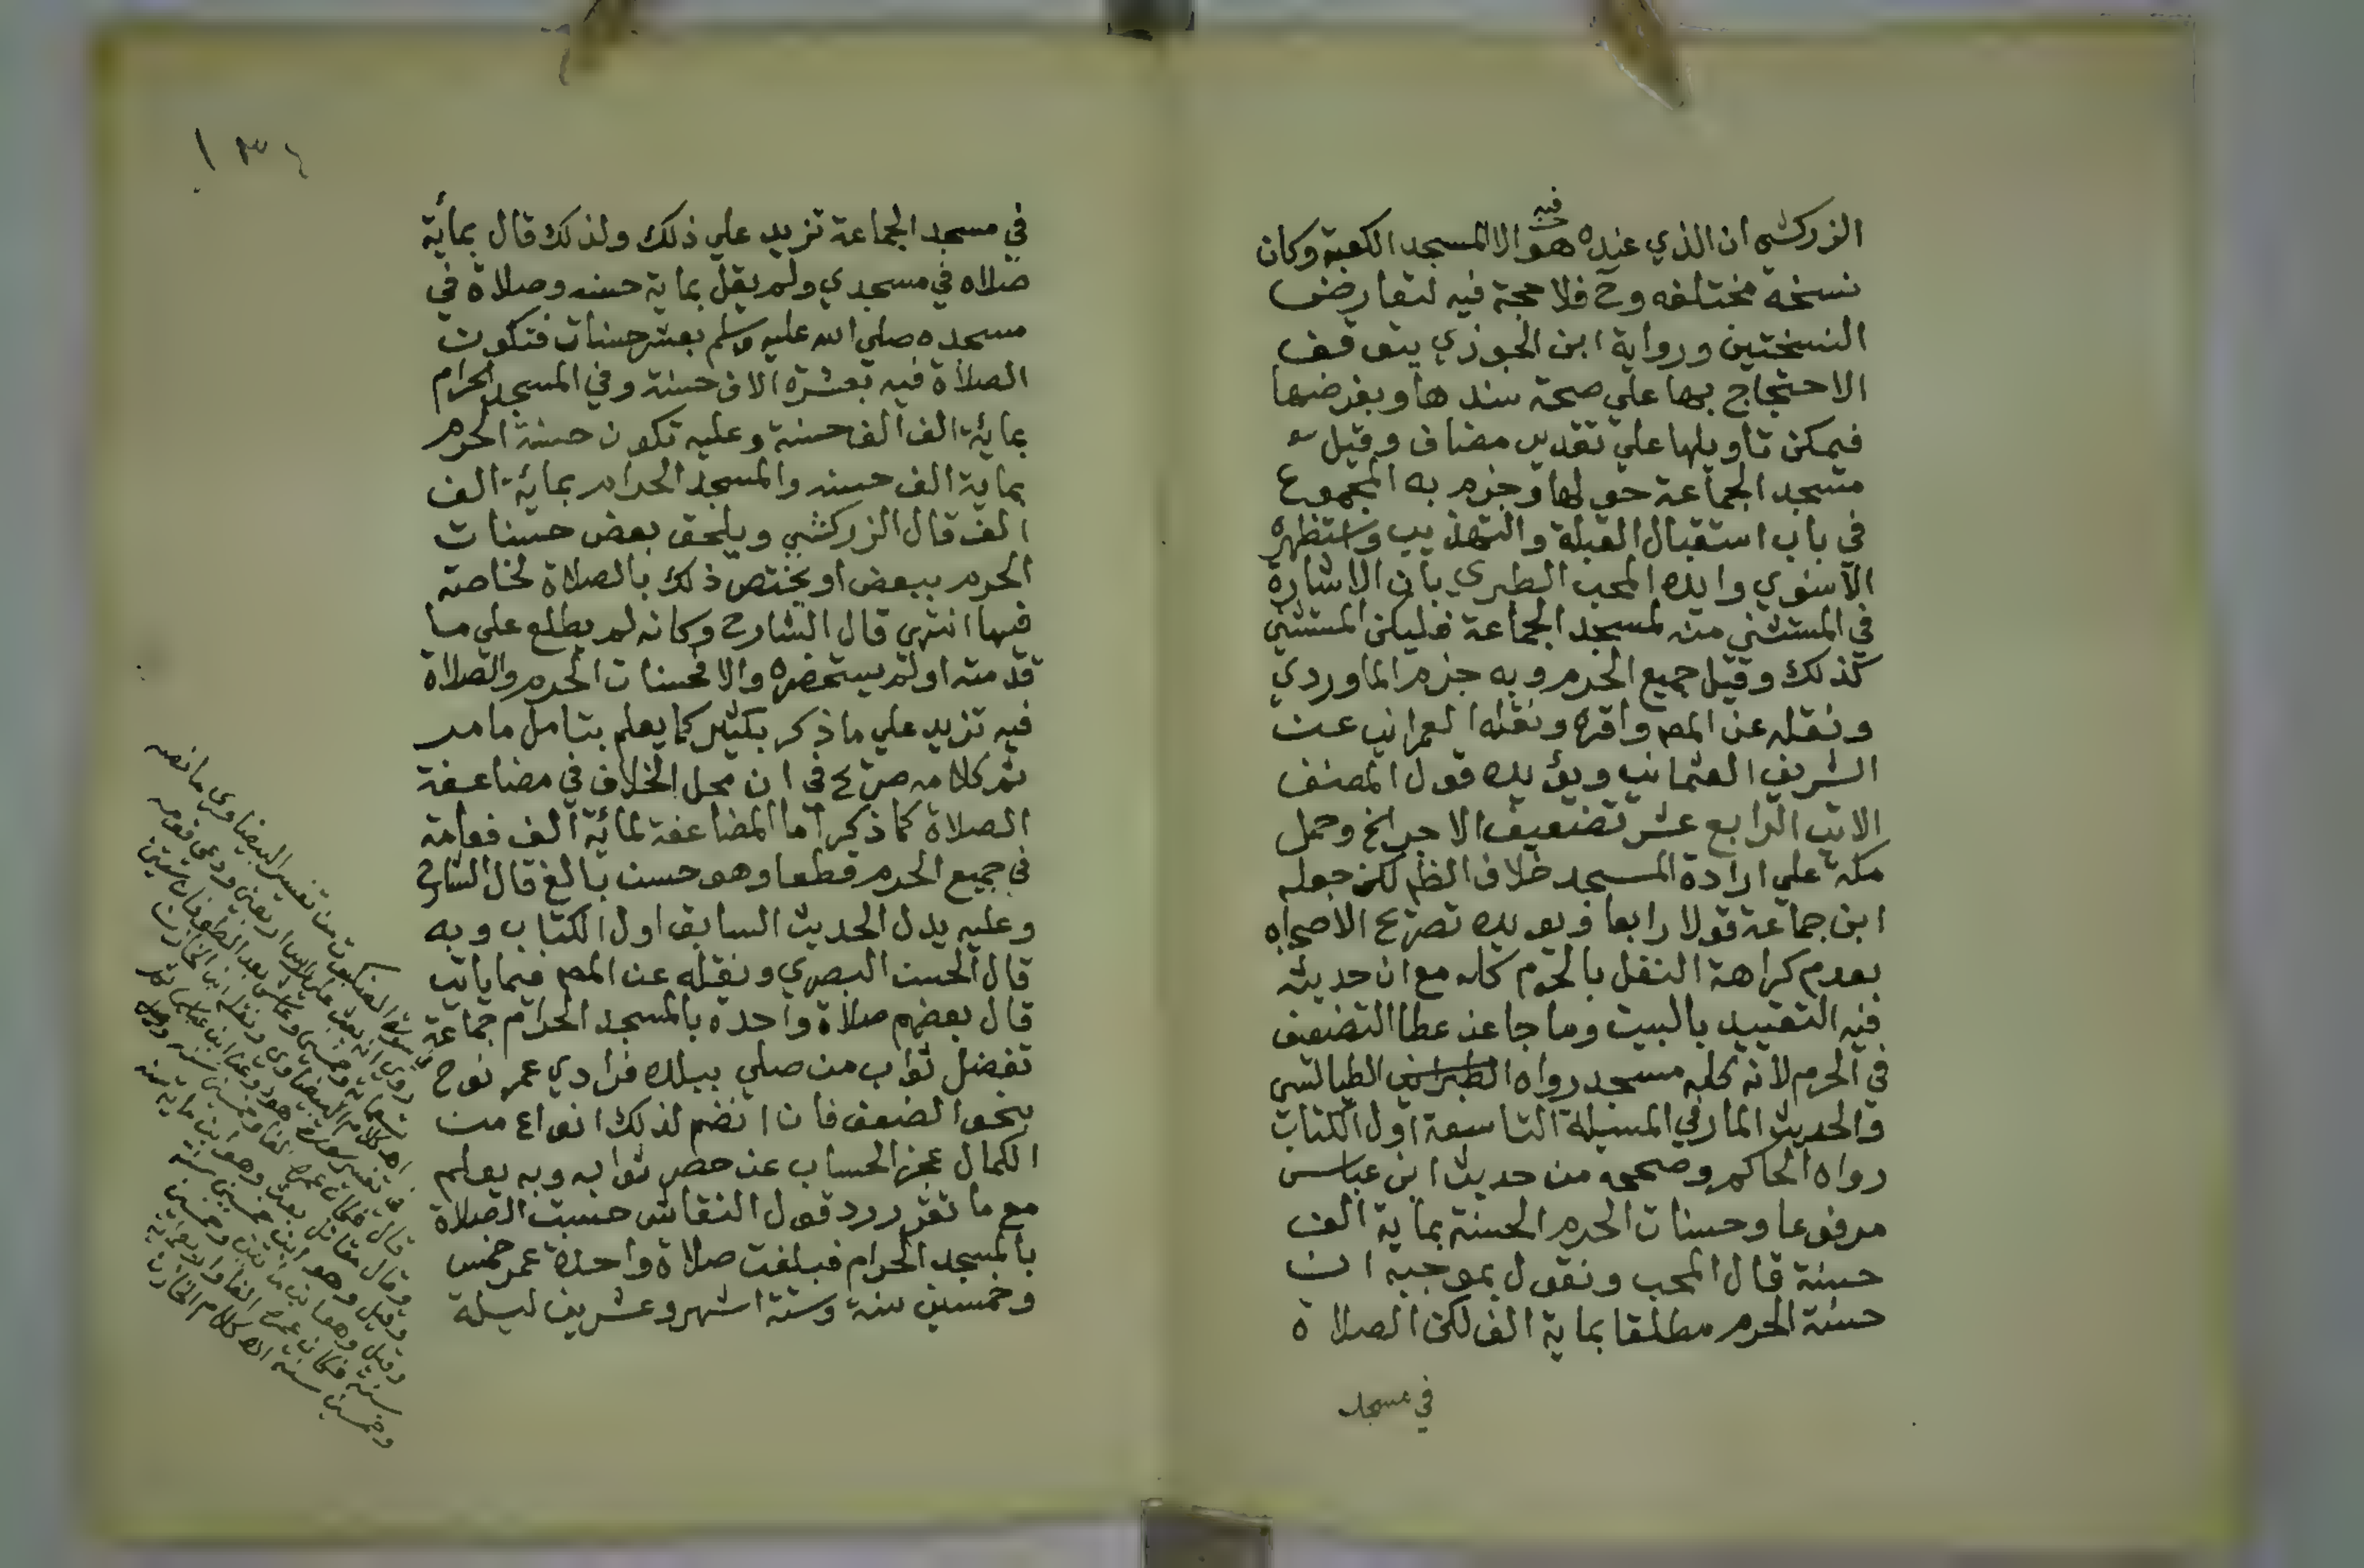 الزركشي ان الذي عنده فيه هو الا المسجد الكعبة وكان
نسخه مختلفه وح فلا حجة فيه لتعارض
النسختين ورواية ابن الجوزي يتوقف
الاحتجاج بها علي صحة سندها وبفرضها
فيمكن تاويلها علي تقدير مضاف وقيل
مسجد الجماعة حولها وجزم به المجموع
في باب استقبال القبلة والتهذيب واستظهره
الاسنوي وايده المحب الطبري بان الاشارة
في المستثني منه لمسجد الجماعة فليكن المستثني
كذلك وقيل جميع الحرم وبه جزم الماوردي
ونقله عن المص واقره ونقله العمراني عن
الشريف العثماني ويؤيده قول المصنف
الاتي الرابع عشر تضعيف الاجر الخ وحمل
مكة علي ارادة المسجد خلاف الظم لكن جعله
ابن جماعة قولا رابعا ويويده تصريح الاصحاب
بعدم كراهة النفل بالحرم كله مع ان حديثه
فيه التقييد بالبيت وما جا عن عطا التضعيف
في الحرم لانه كله مسجد رواه الطبراني الطيالسي
والحديث المار في المسيلة التاسعة اول الكتاب
رواه الحاكم وصححه من حديث ابن عباس
مرفوعا وحسنات الحرم الحسنة بماية الف
حسنة قال المحب ونقول بموجبه ان
حسنة الحرم مطلقا بماية الف لكن الصلاة
في مسجد
١٣٤
في مسجد الجماعة تزيد علي ذلك ولذلك قال بمائة
صلاه في مسجدي ولم يقل بماية حسنه وصلاة في
مسجده صلي الله عليه وسلم بعشر حسنات فتكون
الصلاة فيه بعشرة الاف حسنة وفي المسجد الحرام
بمائة الف الف حسنة وعليه تكون حسنة الحرم
بماية الف حسنه والمسجد الحرام بمائة الف
الف قال الزركشي ويلحق بعض حسنات
الحرم ببعض او يختص ذلك بالصلاة لخاصة
فيها انتهي قال الشارح وكانه لم يطلع علي ما
قدمته او لم يستحضره والا فحسنات الحرم والصلاة
فيه تزيد علي ما ذكر بكثير كما يعلم بتامل ما مر
ثم كلامه صريح في ان محل الخلاف في مضاعفة
الصلاة كما ذكر اما المضاعفة لمائة الف فعامة
في جميع الحرم قطعا وهو حسن بالغ قال الشارح
وعليه يدل الحديث السابق اول الكتاب وبه
قال الحسن البصري ونقله عن المص فيما ياتي
قال بعضهم صلاة واحده بالمسجد الحرام جماعة
تفضل ثواب من صلي ببلده فرادي عمر نوح
بنحو الضعف فان انضم لذلك انواع من
الكمال عجز الحساب عن حصر ثوابه وبه يعلم
مع ما تقرر رد قول النقاش حسبت الصلاة
بالمسجد الحرام فبلغت صلاة واحدة عمر خمس
وخمسين سنة وستة اشهر وعشرين ليلة
في سورة العنكبوت من تفسير البيضاوي ما نصه
روي انه بعث علي راس اربعين ودعي قومه
تسعماية وخمسين وعاش بعد الطوفان ستين
اهـ كلام البيضاوي ونقل ابن الخازن
في تفسير سورة هود وعن ابن عباس
قال فكان عمره الفا وخمسين سنه
وقال مقاتل بعث وهو ابن ماية سنه
وقيل وهو ابن خمسين سنة
وقيل وهو ابن مائتين وخمسين
سنة فكان عمره الفا واربعماية
وخمسين سنة اهـ كلام الخازن